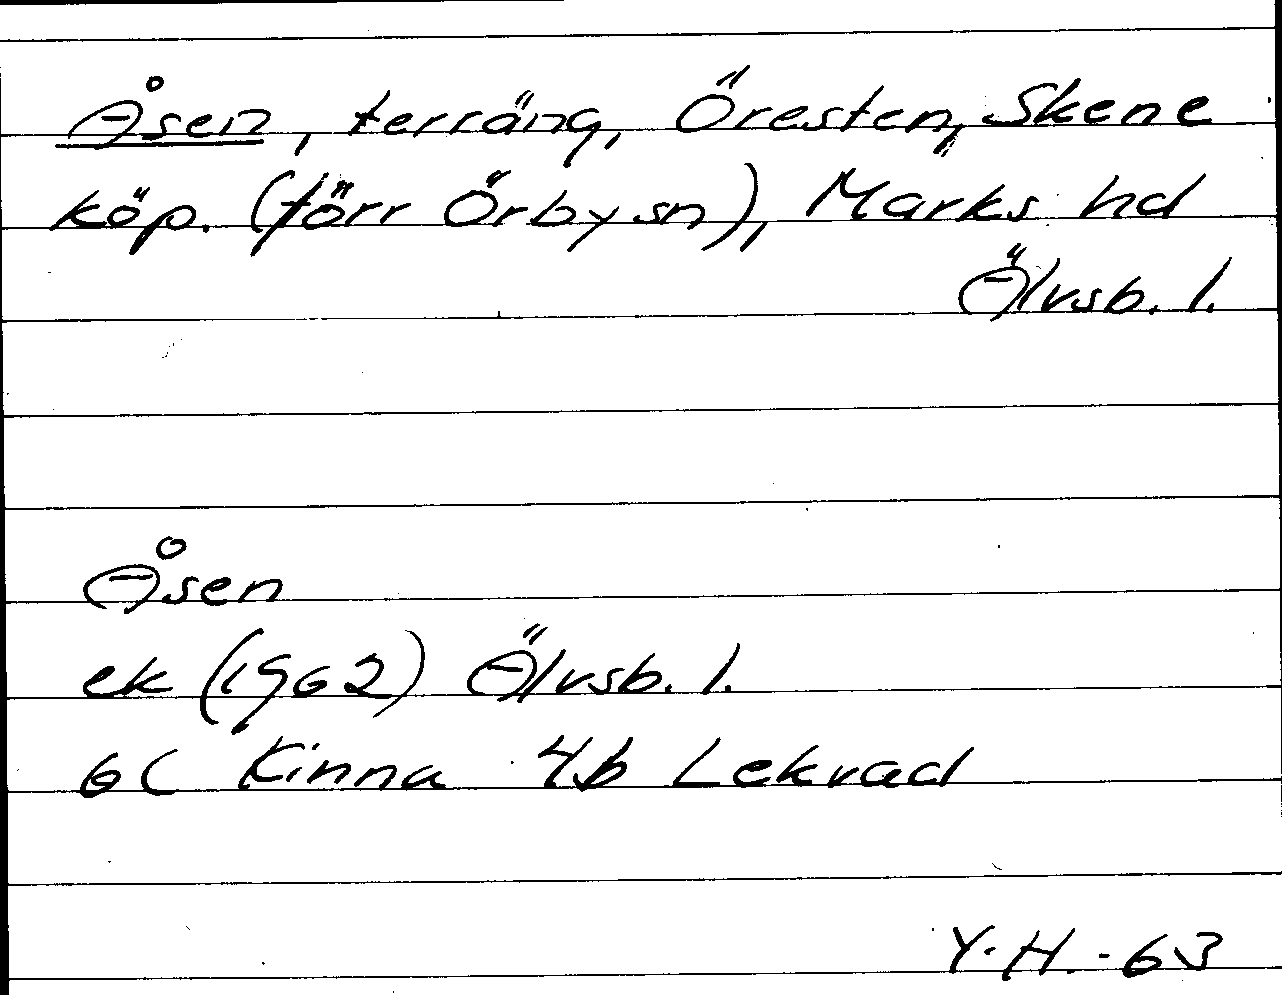 Åsen, terräng, Öresten, Skene
köp. (förr Örby sn), Marks hd
Älvsb. l.
Åsen
ek (1962) Älvsb. l.
6C Kinna 4b Lekvad
Y.H.-63